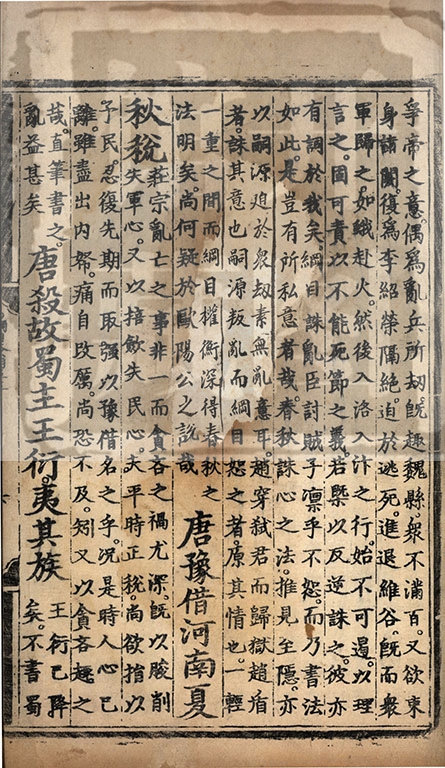 爭帝之意偶爲亂兵所刼旣趣魏縣衆不滿百又欲束
身詣闕復爲李紹榮隔絶迫於逃死進退維谷旣而衆
軍歸之如蛾赴火然後入洛入汴之行始不可遏以理
言之固可責以不能死節之義若槩以反逆誅之彼亦
有詞於我矣綱目誅亂臣討賊子凛乎不恕而乃書法
如此是豈有所私意者哉春秋誅心之法推見至隱亦
以嗣源迫於衆刼素無亂意耳趙穿弑君而歸獄趙盾
者誅其意也嗣源叛亂而綱目恕之者原其情也一輕
一重之間而綱目權衡深得春秋之
法明矣尚何疑於歐陽公之說哉
唐豫借河南夏
秋稅
莊宗亂亡之事非一而貪吝之禍尤深旣以朘削
失軍心又以掊歛失民心夫平時正稅尚欲捐以
予民忍復先期而取強以豫借名之乎况是時人心已
離雖盡出内帑痛自改厲尚恐不及矧又以貪吝趣之
哉直筆書之
亂益甚矣
唐殺故蜀主王衍夷其族
王衍已降
矣不書蜀